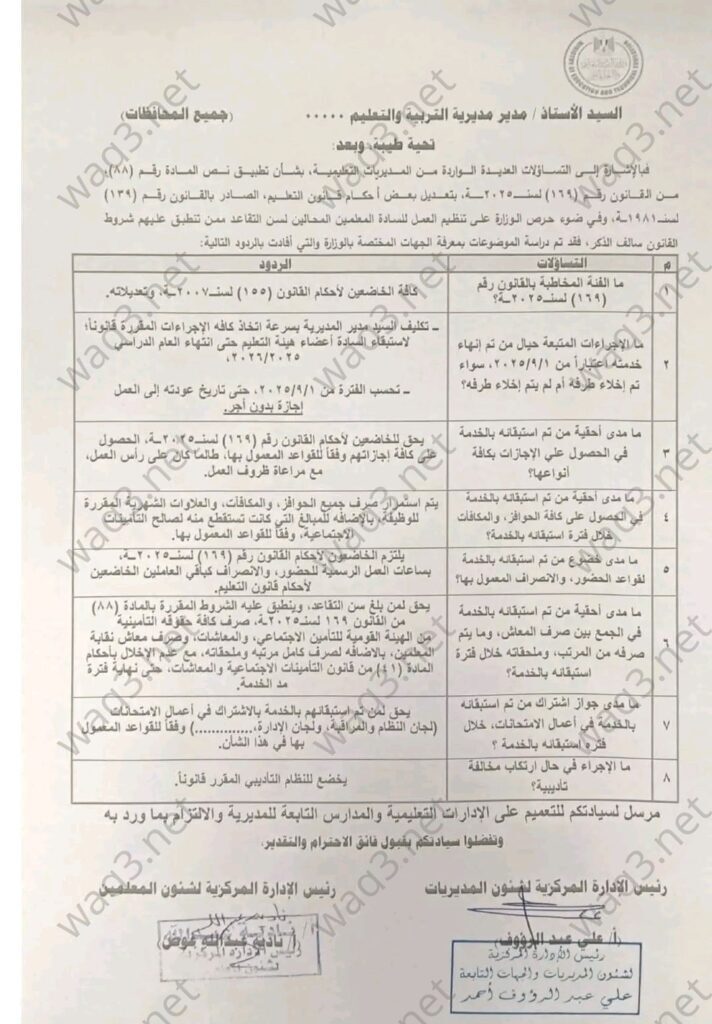 MINISTRY OF EDUCATION AND TECHNICAL EDUCATION
السيد الأستاذ / مدير مديرية التربية والتعليم ..... (جميع المحافظات)
تحية طيبة، وبعد:
فبالإشارة إلى التساؤلات العديدة الواردة من المديريات التعليمية، بشأن تطبيق نص المادة رقم (٨٨)،
من القانون رقم (١٦٩) لسنــ٢٠٢٥ــة، بتعديل بعض أحكام قانون التعليم، الصادر بالقانون رقم (١٣٩)
لسنــ١٩٨١ــة، وفي ضوء حرص الوزارة على تنظيم العمل للسادة المعلمين المحالين لسن التقاعد ممن تنطبق عليهم شروط
القانون سالف الذكر، فقد تم دراسة الموضوعات بمعرفة الجهات المختصة بالوزارة والتي أفادت بالردود التالية:
م التساؤلات الردود
١ ما الفئة المخاطبة بالقانون رقم
(١٦٩) لسنــ٢٠٢٥ــة؟
كافة الخاضعين لأحكام القانون (١٥٥) لسنــ٢٠٠٧ــة، وتعديلاته.
٢ ما الإجراءات المتبعة حيال من تم إنهاء
خدمته اعتباراً من ٢٠٢٥/٩/١، سواء
تم إخلاء طرفه أم لم يتم إخلاء طرفه؟
ـ تكليف السيد مدير المديرية بسرعة اتخاذ كافه الإجراءات المقررة قانوناً؛
لاستبقاء السادة أعضاء هيئة التعليم حتى انتهاء العام الدراسي
٢٠٢٦/٢٠٢٥،
ـ تحسب الفترة من ٢٠٢٥/٩/١، حتى تاريخ عودته إلى العمل
إجازة بدون أجر.
٣ ما مدى أحقية من تم استبقائه بالخدمة
في الحصول علي الإجازات بكافة
أنواعها؟
يحق للخاضعين لأحكام القانون رقم (١٦٩) لسنــ٢٠٢٥ــة، الحصول
على كافة إجازاتهم وفقاً للقواعد المعمول بها، طالما كان على رأس العمل،
مع مراعاة ظروف العمل.
٤ ما مدى أحقية من تم استبقائه بالخدمة
في الحصول على كافة الحوافز، والمكافآت
خلال فترة استبقائه بالخدمة؟
يتم استمرار صرف جميع الحوافز، والمكافآت، والعلاوات الشهرية المقررة
للوظيفة، بالإضافه للمبالغ التي كانت تستقطع منه لصالح التأمينات
الاجتماعية، وفقاً للقواعد المعمول بها.
٥ ما مدى خضوع من تم استبقائه بالخدمة
لقواعد الحضور، والانصراف المعمول بها؟
يلتزم الخاضعون لأحكام القانون رقم (١٦٩) لسنــ٢٠٢٥ــة،
بساعات العمل الرسمية للحضور، والانصراف كباقي العاملين الخاضعين
لأحكام قانون التعليم.
٦ ما مدى أحقية من تم استبقائه بالخدمة
في الجمع بين صرف المعاش، وما يتم
صرفه من المرتب، وملحقاته خلال فترة
استبقائه بالخدمة؟
يحق لمن بلغ سن التقاعد، وينطبق عليه الشروط المقررة بالمادة (٨٨)
من القانون ١٦٩ لسنــ٢٠٢٥ــة، صرف كافة حقوقه التأمينية
من الهيئة القومية للتأمين الاجتماعي، والمعاشات، وصرف معاش نقابة
المعلمين، بالاضافه لصرف كامل مرتبه وملحقاته، مع عدم الإخلال بأحكام
المادة (٤١) من قانون التأمينات الاجتماعية والمعاشات، حتى نهاية فترة
مد الخدمة.
٧ ما مدى جواز اشتراك من تم استبقائه
بالخدمة في أعمال الامتحانات، خلال
فتره استبقائه بالخدمة ؟
يحق لمن تم استبقائهم بالخدمة بالاشتراك في أعمال الامتحانات
(لجان النظام والمراقبة، ولجان الإدارة،..............) وفقاً للقواعد المعمول
بها في هذا الشأن.
٨ ما الإجراء في حال ارتكاب مخالفة
تأديبية؟
يخضع للنظام التأديبي المقرر قانوناً.
مرسل لسيادتكم للتعميم على الإدارات التعليمية والمدارس التابعة للمديرية والالتزام بما ورد به
وتفضلوا سيادتكم بقبول فائق الاحترام والتقدير،
رئيس الإدارة المركزية لشئون المديريات رئيس الإدارة المركزية لشئون المعلمين
(أ/ علي عبد الرؤوف) (أ/ نادية عبدالله عوض)
رئيس الإدارة المركزية
لشئون المديريات والجهات التابعة
علي عبد الرؤوف أحمد
رئيس الإدارة المركزية
waq3.net